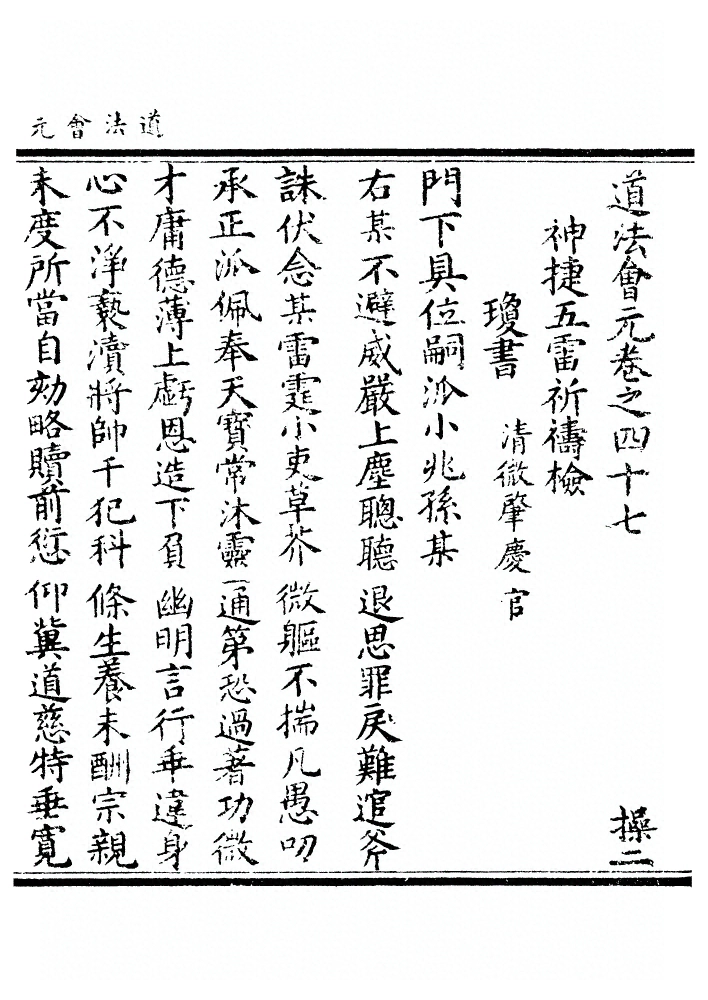 道法會元
道法會元卷之四十七 操二
神捷五雷祈禱檢
瓊書 清微肇慶官
門下具位嗣派小兆孫某
右某不避威嚴上塵聰聽退思罪戾難逭斧
誅伏念某雷霆小吏草芥微軀不揣凡愚叨
承正派佩奉天寶常沐靈通第恐過著功微
才庸德薄上虧恩造下負幽明言行乖違身
心不淨褻瀆將帥干犯科條生養未酬宗親
未度所當自劾略贖前愆仰冀道慈特垂寬